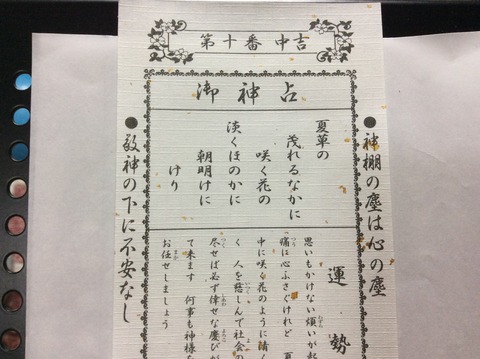 第十番 中吉
御神占
●神棚の塵は心の塵
夏草の
茂れるなかに
咲く花の
淡くほのかに
朝明けに
けり
運勢
思いもかけない煩いが起
痛は心ふさぐけれど 夏
中に咲く花のように清く
く 人を慈しんで社会の
尽せば必ず倖せな慶びが
て来ます 何事も神様な
お任せしましょう
●敬神の下に不安なし